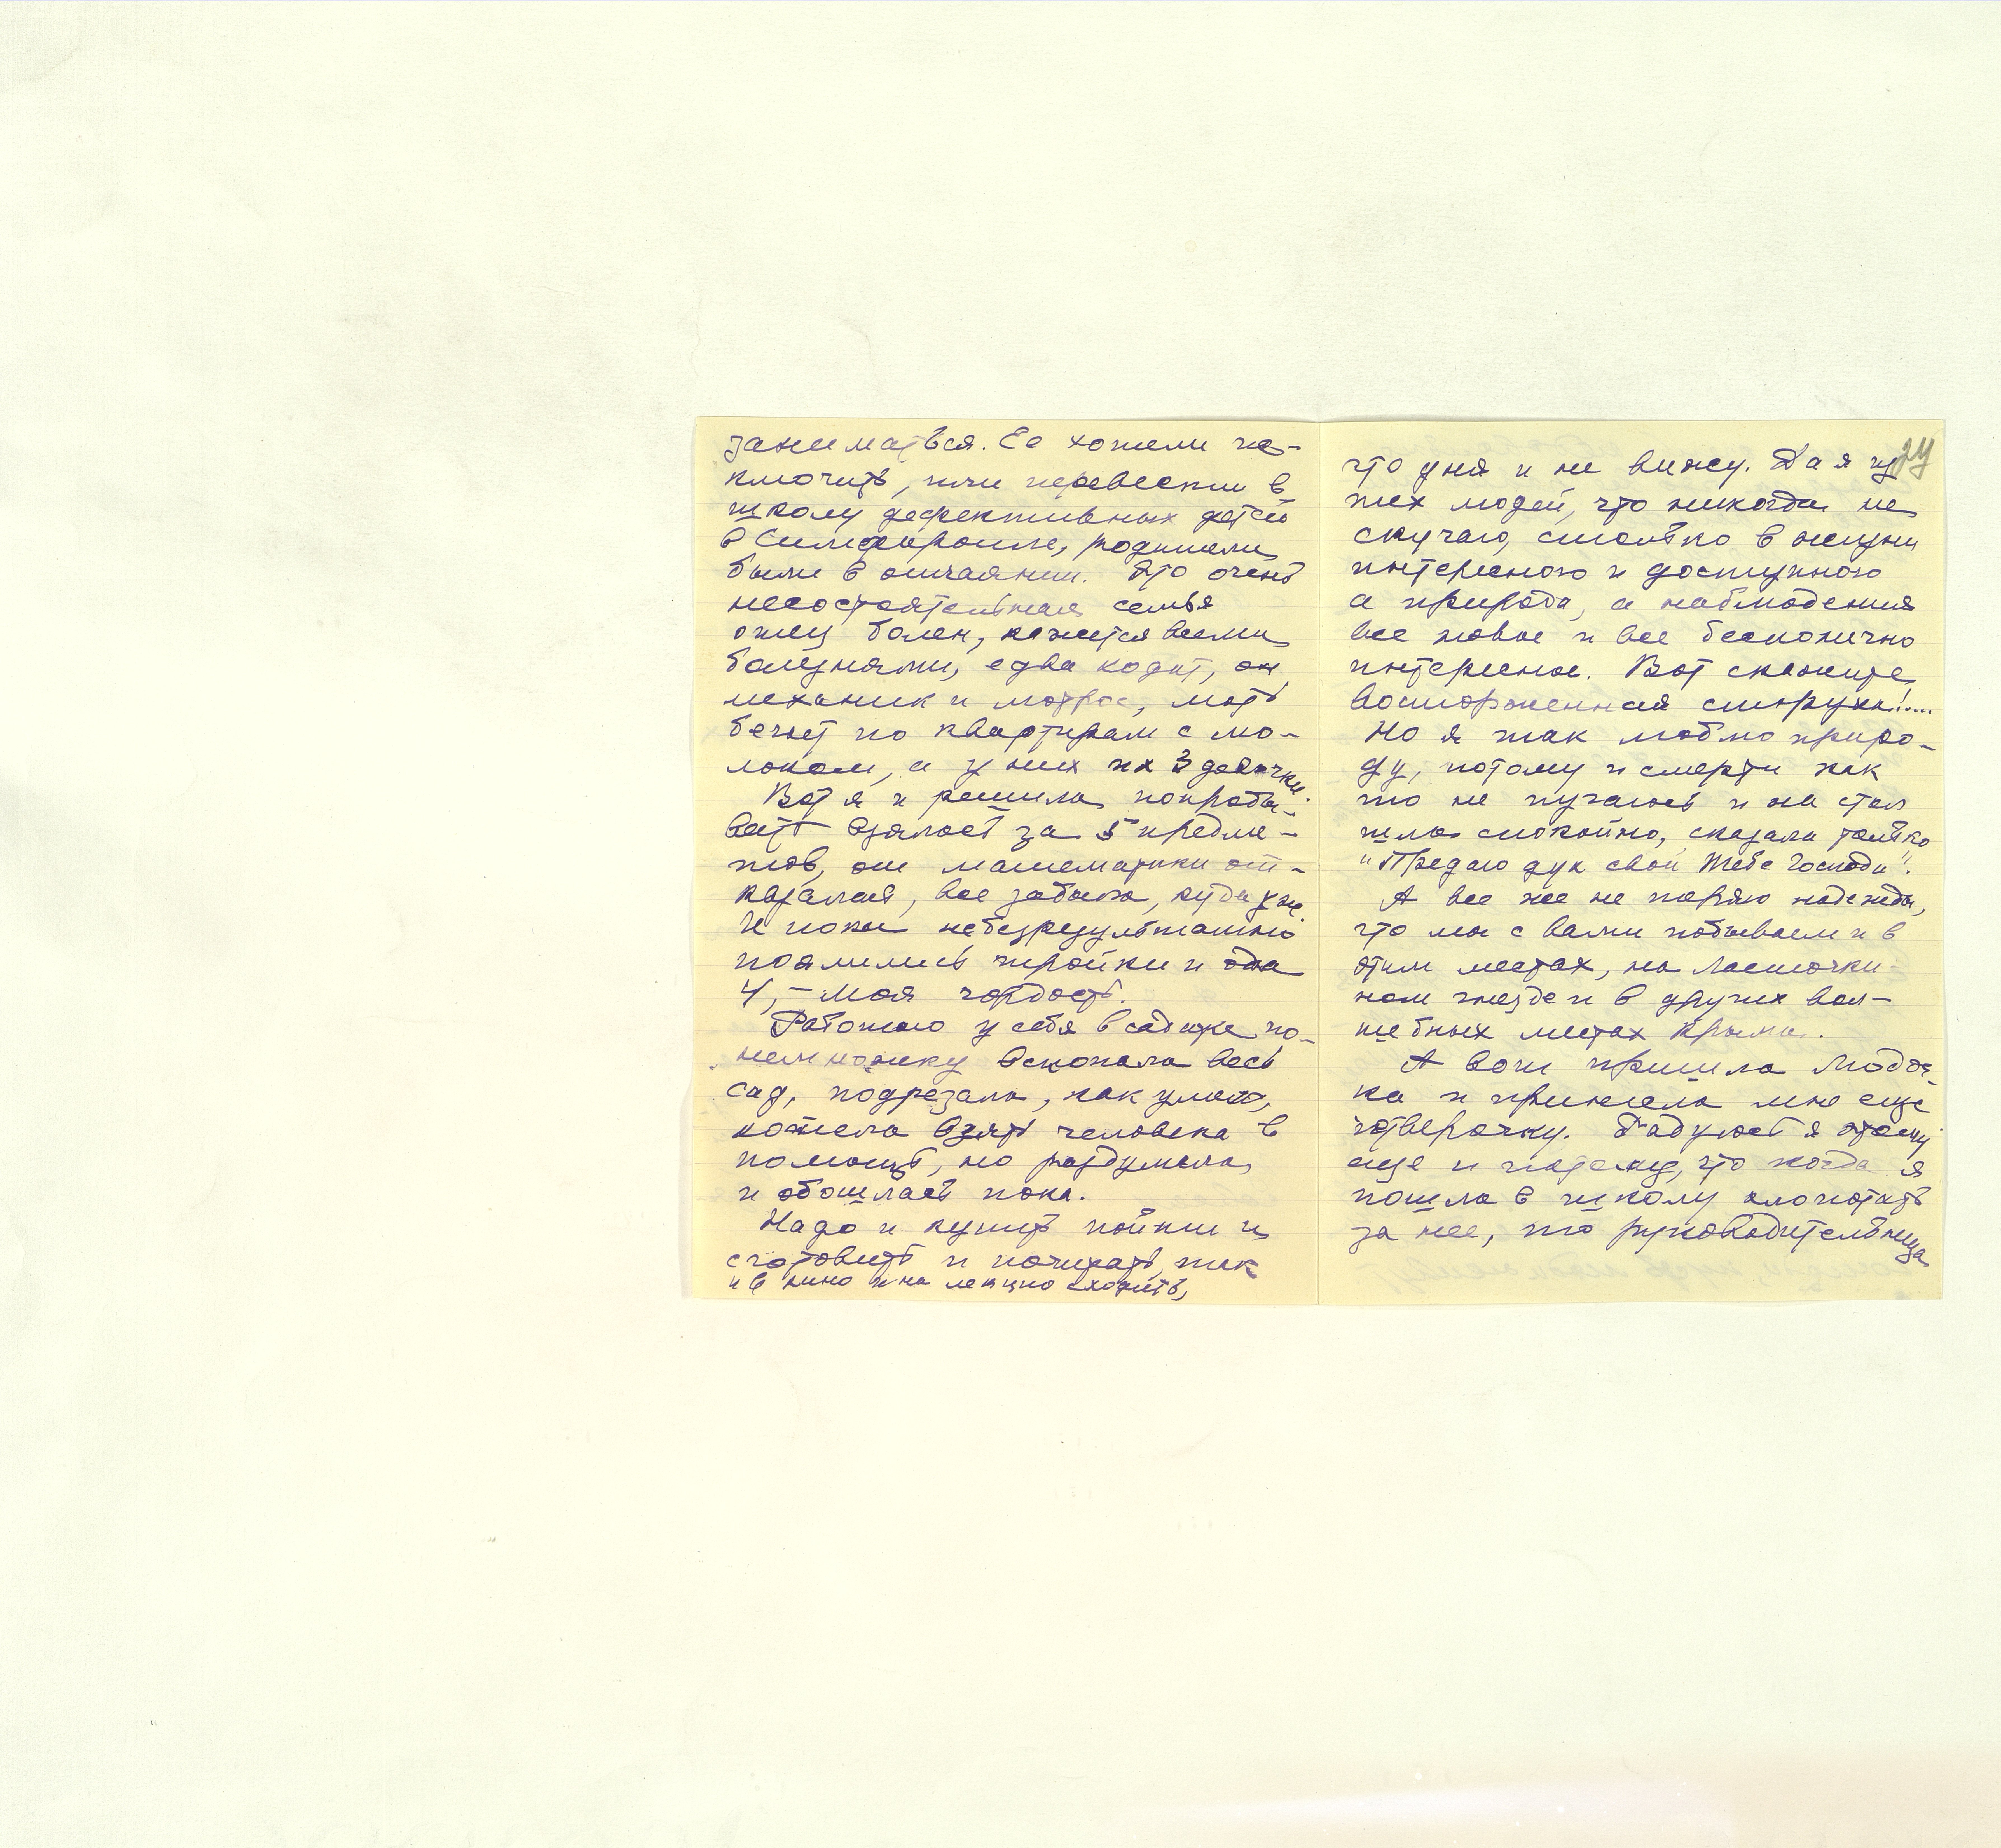 заниматься. Ее хотели ис-
ключить, или перевести в
школу дефективных детей
в Симферополе, родители
были в отчаянии. Это очень
несостоятельная семья
отец болен, кажется всеми
болезнями, едва ходит, он
механик и матрос, мать
бегает по квартирам с мо-
локом, а у них их 3 девочки.
Вот я и решила попробо-
вать взялась за 5 предме-
тов, от математики от-
казалась, все забыла, куда уж.
И пока небезрезультатно
появились тройки и одна
4, – моя гордость.
Работаю у себя в садике по-
немножку вскопала весь
сад, подрезала, как умела,
хотела взять человека в
помощь, но раздумала,
и обошлась пока.
Надо и купить пойти и
сготовить и почитать, так
и в кино и на лекцию сходить,
24
что дня и не вижу. Да я из
тех людей, что никогда не
скучаю, столько в жизни
интересного и доступного
а природа, а наблюдения
все новое и все бесконечно
интересное. Вот скажите,
восторженная старуха!....
Но я так люблю приро-
ду, потому и смерти как
то не пугаюсь и на стол
шла спокойно, сказала только
"Предаю дух свой Тебе Господи".
А все же не теряю надежды,
что мы с вами побываем и в
этих местах, на Ласточки-
ном гнезде и в других вол-
шебных местах Крыма.
А вот пришла Любоч-
ка и принесла мне еще
четверочку. Радуюсь я этому
еще и потому, что когда я
пошла в школу хлопотать
за нее, то руководительница